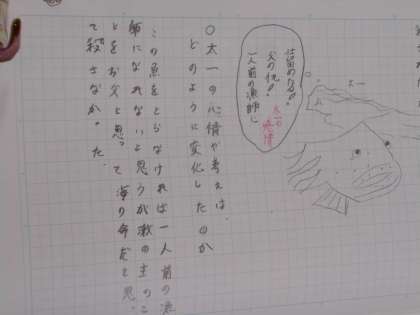 太一
仕留めるぞ。
父の仇。
一人前の漁師に
太一の感情
○太一の心情や考えは、
どのように変化したのか
この魚をとらなければ一人前の漁
師になれないと思うが救の主のこ
とをお父と思って海の命だと思っ
て殺さなかった。